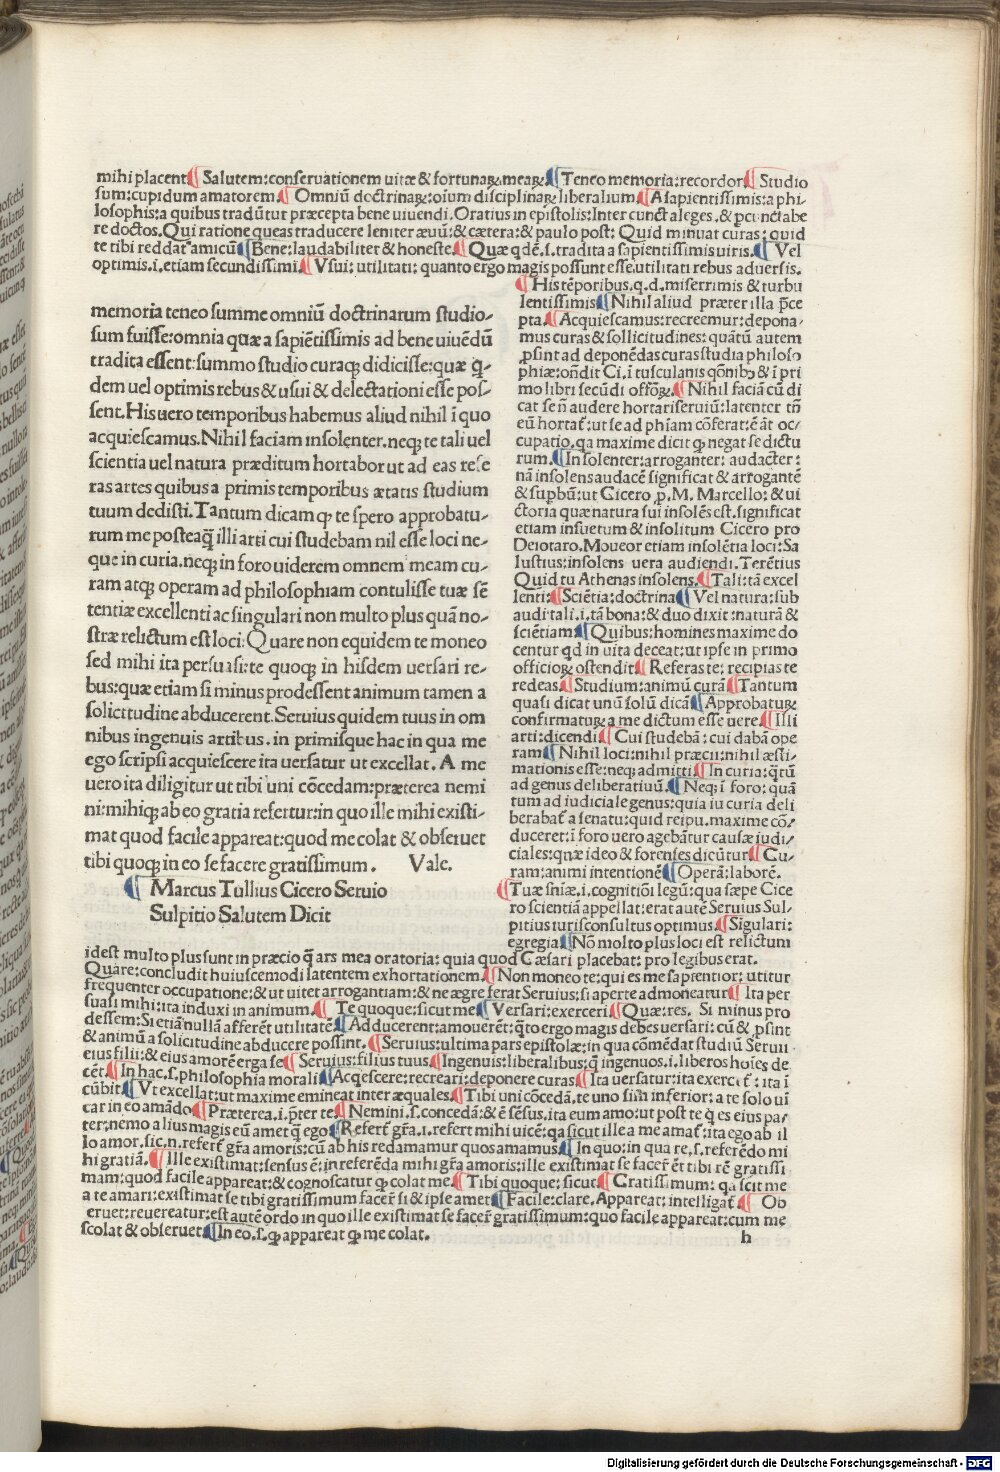 mihi placent ¶ Salutem: conseruationem uitæ & fortunaꝝ meaꝝ ¶ Teneo memoria: recordor ¶ Studio
sum: cupidum amatorem ¶ Omniū doctrinaꝝ: oīum disciplinaꝝ liberalium ¶ A sapientissimis: a phi
losophis: a quibus tradūtur præcepta bene uiuendi. Oratius in epistolis: Inter cuncta leges. & pcūctabe
re doctos. Qui ratione queas traducere leniter æuū: & cætera: & paulo post: Quid minuat curas: quid
te tibi reddat amicū ¶ Bene: laudabiliter & honeste. ¶ Quæ qdē. s. tradita a sapientissimis uiris. ¶ Vel
optimis. i. etiam secundissimi. ¶ Vsui: utilitati: quanto ergo magis possunt esse utilitati rebus aduersis.
memoria teneo summe omniū doctrinarum studio-
sum fuisse: omnia quæ a sapiētissimis ad bene uiuēdū
tradita essent: summo studio curaqꝫ didicisse: quæ q̄-
dem uel optimis rebus & usui & delectationi esse pos-
sent. His uero temporibus habemus aliud nihil ī quo
acquiescamus. Nihil faciam insolenter. neqꝫ te tali uel
scientia uel natura præditum hortabor ut ad eas refe
ras artes quibus a primis temporibus ætatis studium
tuum dedisti. Tantum dicam qꝫ te spero approbatu-
rum me posteaq̄ illi arti cui studebam nil esse loci ne-
que in curia. neqꝫ in foro uiderem omnem meam cu-
ram atqꝫ operam ad philosophiam contulisse tuæ sē
tentiæ excellenti ac singulari non multo plus quā no-
stræ relictum est loci: Quare non equidem te moneo
sed mihi ita persuasi: te quoqꝫ in hisdem uersari re-
bus: quæ etiam si minus prodessent animum tamen a
solicitudine abducerent. Seruius quidem tuus in om
nibus ingenuis artibus. in primisque hac in qua me
ego scripsi acquiescere ita uersatur ut excellat. A me
uero ita diligitur ut tibi uni cōcedam: præterea nemi
ni: mihiqꝫ ab eo gratia refertur: in quo ille mihi existi-
mat quod facile appareat: quod me colat & obseruet
tibi quoqꝫ in eo se facere gratissimum. Vale.
¶ Marcus Tullius Cicero Seruio
Sulpitio Salutem Dicit
¶ His tēporibus. q. d. miserrimis & turbu
lentissimis ¶ Nihil aliud præter illa p̄ce
pta. ¶ Acquiescamus: recreemur: depona-
mus curas & sollicitudines: quātū autem
ꝓsint ad deponēdas curas studia philoso
phiæ: oñdit Ci. ī tusculanis qōnibꝫ & ī pri
mo libri secūdi offōꝝ. ¶ Nihil faciā cū di
cat se ñ audere hortari seruiū: latenter tñ
eū hortat᷑: ut se ad phīam cōferat: ē āt oc-
cupatio. qa maxime dicit qꝫ negat se dictu
rum. ¶ Insolenter: arroganter: audacter:
nā insolens audacē significat & arrogantē
& supbū: ut Cicero ꝓ. M. Marcello: & ui
ctoria quæ natura sui insolēs est. significat
etiam insuetum & insolitum Cicero pro
Deiotaro. Moueor etiam insolētia loci: Sa
lustius: insolens uera audiendi. Terētius
Quid tu Athenas insolens. ¶ Tali: tā excel
lenti: ¶ Sciētia: doctrina ¶ Vel natura: sub
audi tali. i. tā bona: & duo dixit: naturā &
sciētiam ¶ Quibus: homines maxime do
centur qd in uita deceat: ut ipse in primo
officioꝝ ostendit ¶ Referas te: recipias te
redeas ¶ Studium: animū curā ¶ Tantum
quasi dicat unū solū dicā ¶ Approbatuꝝ
confirmatuꝝ a me dictum esse uere ¶ Illi
arti: dicendi ¶ Cui studebā: cui dabā ope
ram ¶ Nihil loci: nihil præcii: nihil æsti-
mationis esse: neqꝫ admitti ¶ In curia: q̄tū
ad genus deliberatiuū. ¶ Neqꝫ ī foro: quā
tum ad iudiciale genus: quia iu curia deli
berabat᷑ a senatu: quid reipu. maxime cō-
duceret: ī foro uero agebātur causæ iudi-
ciales: quæ ideo & forenses dicūtur ¶ Cu-
ram: animi intentionē ¶ Operā: laborē.
¶ Tuæ sniæ. i. cognitiōi legū: qua sæpe Cice
ro scientiā appellat: erat autē Seruius Sul-
pitius iurisconsultus optimus. ¶ Sigulari:
egregia ¶ Nō molto plus loci est relictum
idest multo plus sunt in præcio q̄ ars mea oratoria: quia quod Cæsari placebat: pro legibus erat.
Quare: concludit huiuscemodi latentem exhortationem. ¶ Non moneo te: qui es me sapientior: utitur
frequenter occupatione: & ut uitet arrogantiam: & ne ægre ferat Seruius: si aperte admoneatur ¶ Ita per
suasi mihi: ita induxi in animum. ¶ Te quoque: sicut me ¶ Versari: exerceri ¶ Quæ: res. Si minus pro
dessem: Si etiā nullā afferēt utilitatē ¶ Adducerent: amouerēt: q̄to ergo magis debes uersari: cū & ꝓsint
& animū a solicitudine abducere possint. ¶ Seruius: ultima pars epistolæ: in qua cōmēdat studiū Seruii
eius filii: & eius amorē erga se ¶ Seruius: filius tuus ¶ Ingenuis: liberalibus: q̄ ingenuos. i. liberos hoīes de
cēt. ¶ In hac. s. philosophia morali ¶ Acqescere: recreari: deponere curas ¶ Ita uersatur: ita exercet᷑: ita ī
cūbit ¶ Vt excellat: ut maxime emineat inter æquales ¶ Tibi uni cōcedā. te uno sim inferior: a te solo uī
car in eo amādo ¶ Præterea. i. ꝓter te ¶ Nemini. s. concedā: & ē sēsus, ita eum amo: ut post te q̄ es eius pa-
ter: nemo alius magis eū amet q̄ ego ¶ Refert᷑ gr̄a. i. refert mihi uicē: qa sicut ille a me amat᷑: ita ego ab il
lo amor. sic. n. refert᷑ gr̄a amoris: cū ab his redamamur quos amamus ¶ In quo: in qua re. s. referēdo mi
hi gratiā. ¶ Ille existimat: sensus ē: in referēda mihi gr̄a amoris: ille existimat se facer᷑ ēt tibi rē gratissi
mam: quod facile appareat: & cognoscatur qꝫ colat me ¶ Tibi quoque: sicut ¶ Gratissimum: qa scit me
a te amari: existimat se tibi gratissimum facer᷑ si & ipse amet ¶ Facile: clare. Appareat: intelligat᷑ ¶ Ob
eruet: reuereatur: est autē ordo in quo ille existimat se facer᷑ gratissimum: quo facile appareat: cum me
scolat & obseruet ¶ In eo. s. qꝫ appareat qꝫ me colat.
h
Digitalisierung gefördert durch die Deutsche Forschungsgemeinschaft - DFG